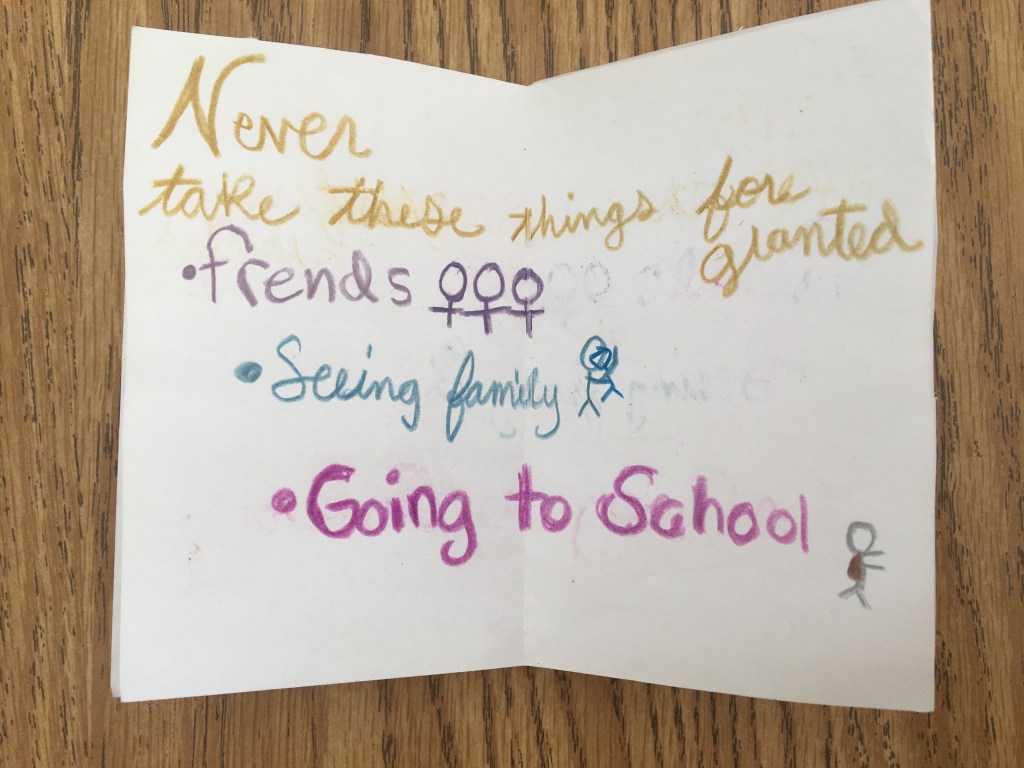 Never
take these things fore
granted
•frends
•Seeing family
•Going to School